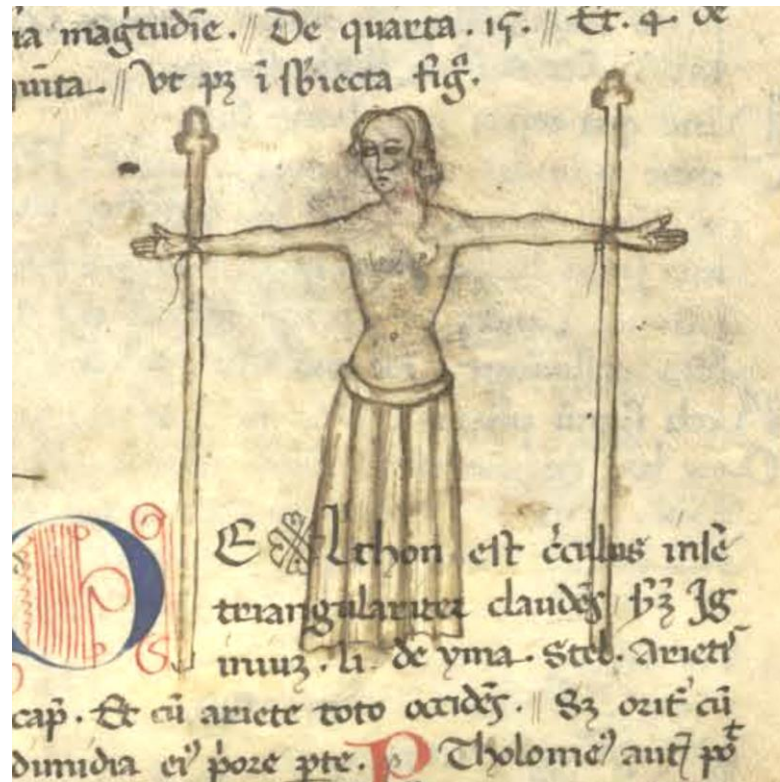 ia mag̃tudīe. // De quarta. 15. // Et. 4 de
quīta // Vt pꝫ ī sb̄iecta fig̃.
DE Althon est c̃culus insē
triangularitez claudēs scꝫ Jg
iniuꝫ. li. de yma. Stel. Arietiˢ
cap̃. Et cū ariete toto occidēs. // Sꝫ orit᷑ cū
dimidia eiꝰ p̓ore p̄te. P Tholomeꝰ aut̄ pōt